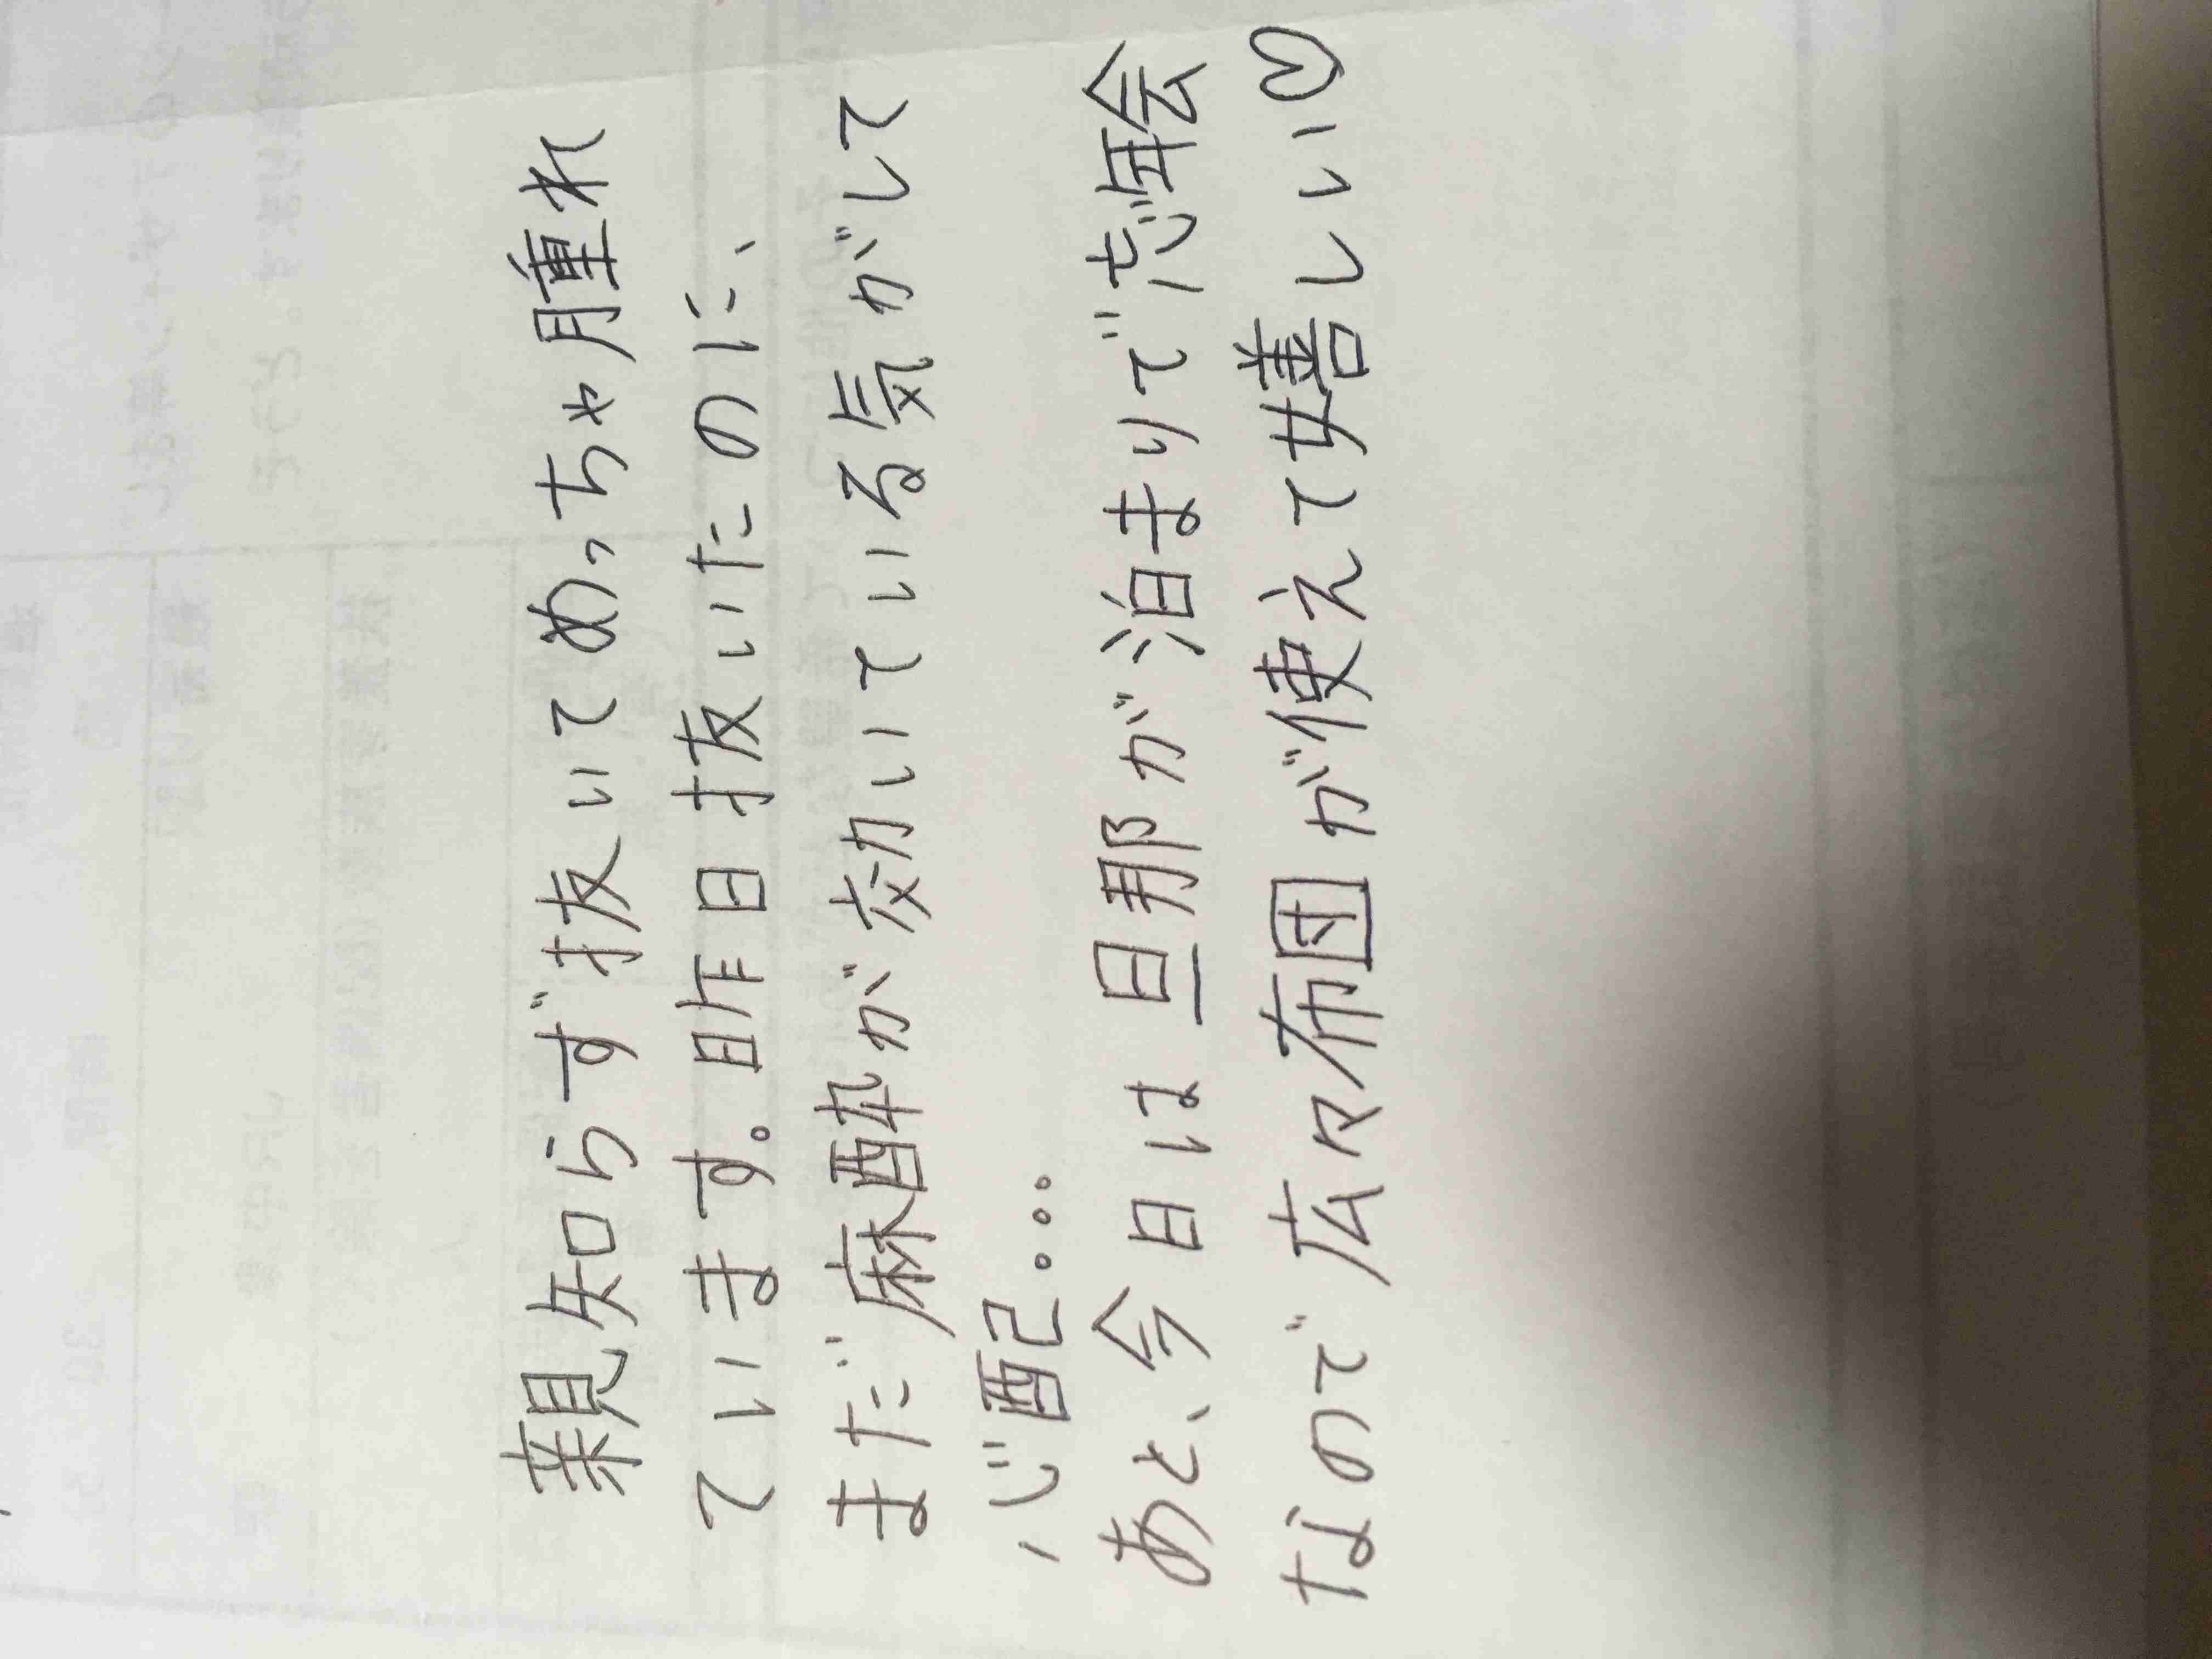 親知らず抜いてめっちゃ腫れ
ています。昨日抜いたのに、
まだ麻酔が効いている気がして
心配...
あと、今日は旦那が泊まりで忘年会
なので広々布団が使えて嬉しい♡